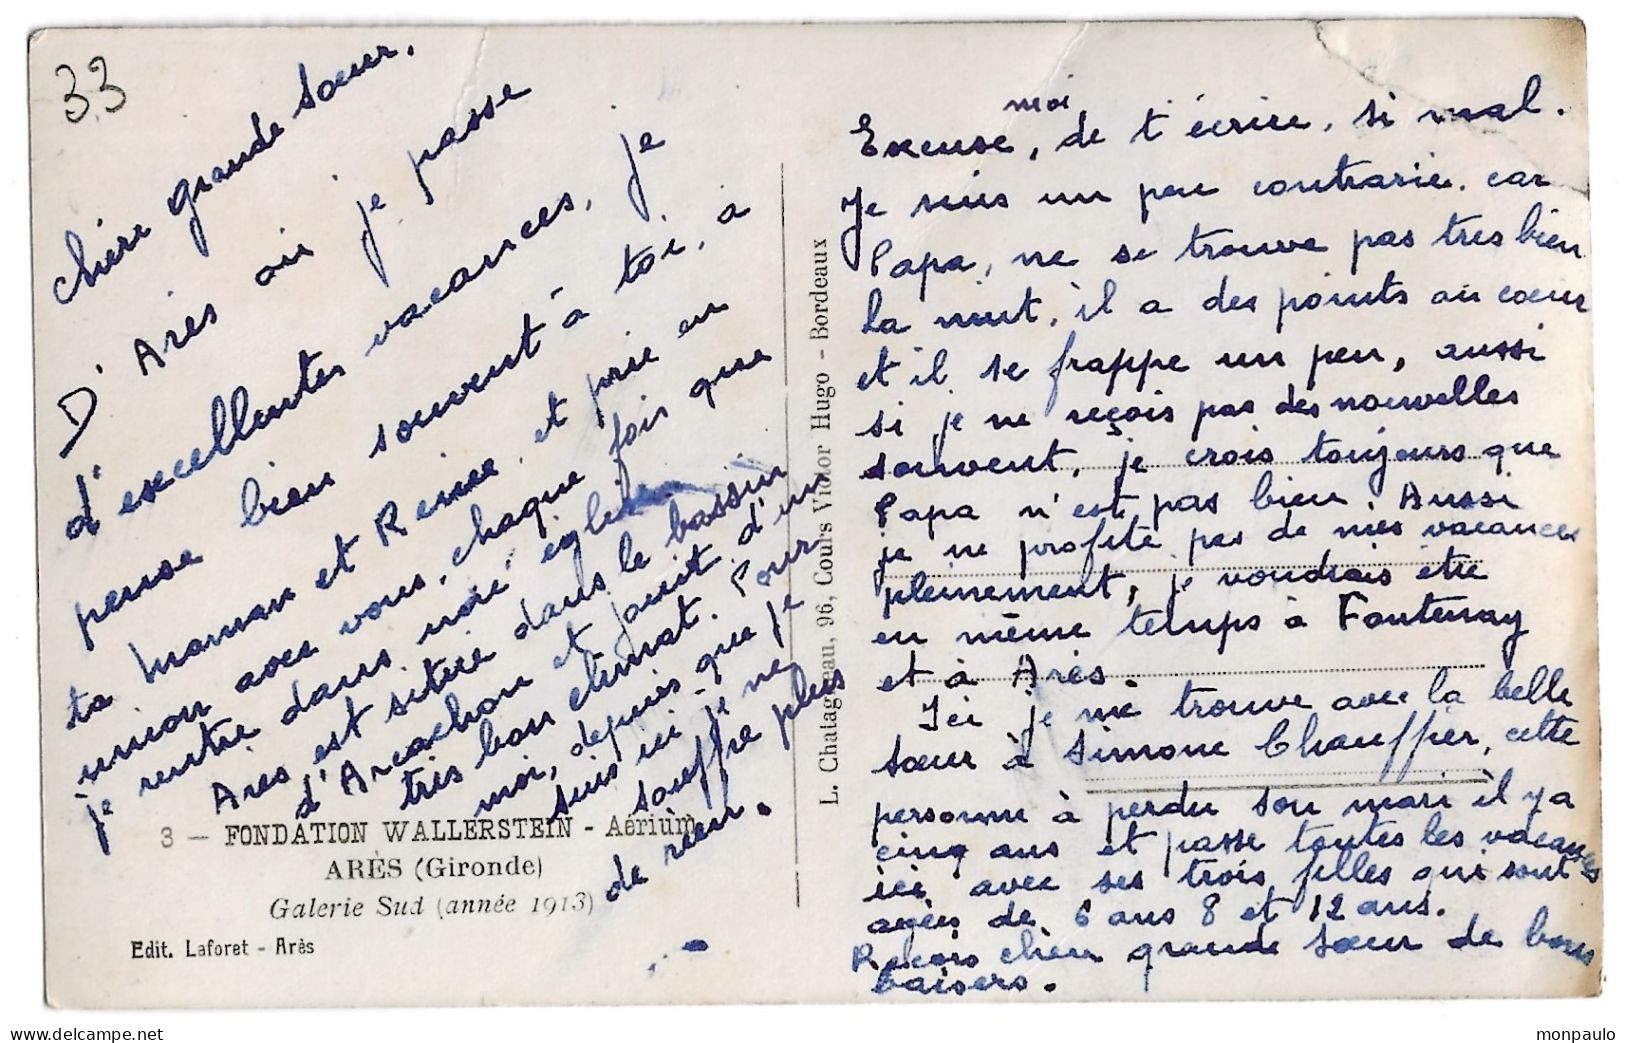 33
chère grande sœur.
D'Arès où je passe
d'excellentes vacances, je
pense bien souvent à toi, à
ta maman et Renée et prie en
union avec vous, chaque fois que
je rentre dans notre église
Ares est située dans le bassin
d'Arcachon et jouit d'un
très bon climat. Pour
moi, depuis que je
suis ici je ne
souffre plus
de rien.
3 — FONDATION WALLERSTEIN - Aérium
ARÈS (Gironde)
Galerie Sud (année 1913)
Edit. Laforet - Arès
L. Chatagneau, 96, Cours Victor Hugo - Bordeaux
moi
Excuse, de t'écrire, si mal.
Je suis un peu contrarié, car
Papa, ne se trouve pas tres bien
la nuit, il a des points au coeur
et il se frappe un peu, aussi
si je ne reçois pas des nouvelles
souvent, je crois toujours que
Papa n'est pas bien. Aussi
je ne profite pas de mes vacances
pleinement, je voudrais être
en même temps à Fontenay
et à Arès.
Ici je me trouve avec la belle
sœur à Simone Chauffier, cette
personne à perdu son mari il y a
cinq ans et passe toutes les vacances
ici avec ses trois filles qui sont
agées de 6 ans 8 et 12 ans.
Reçois chère grande sœur de bons
baisers.
monpaulo